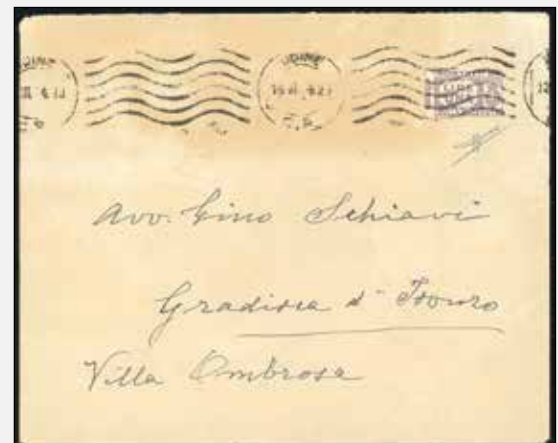 UDINE
Avv. Gino Schiavi
Gradisca d'Isonzo
Villa Ombrosa